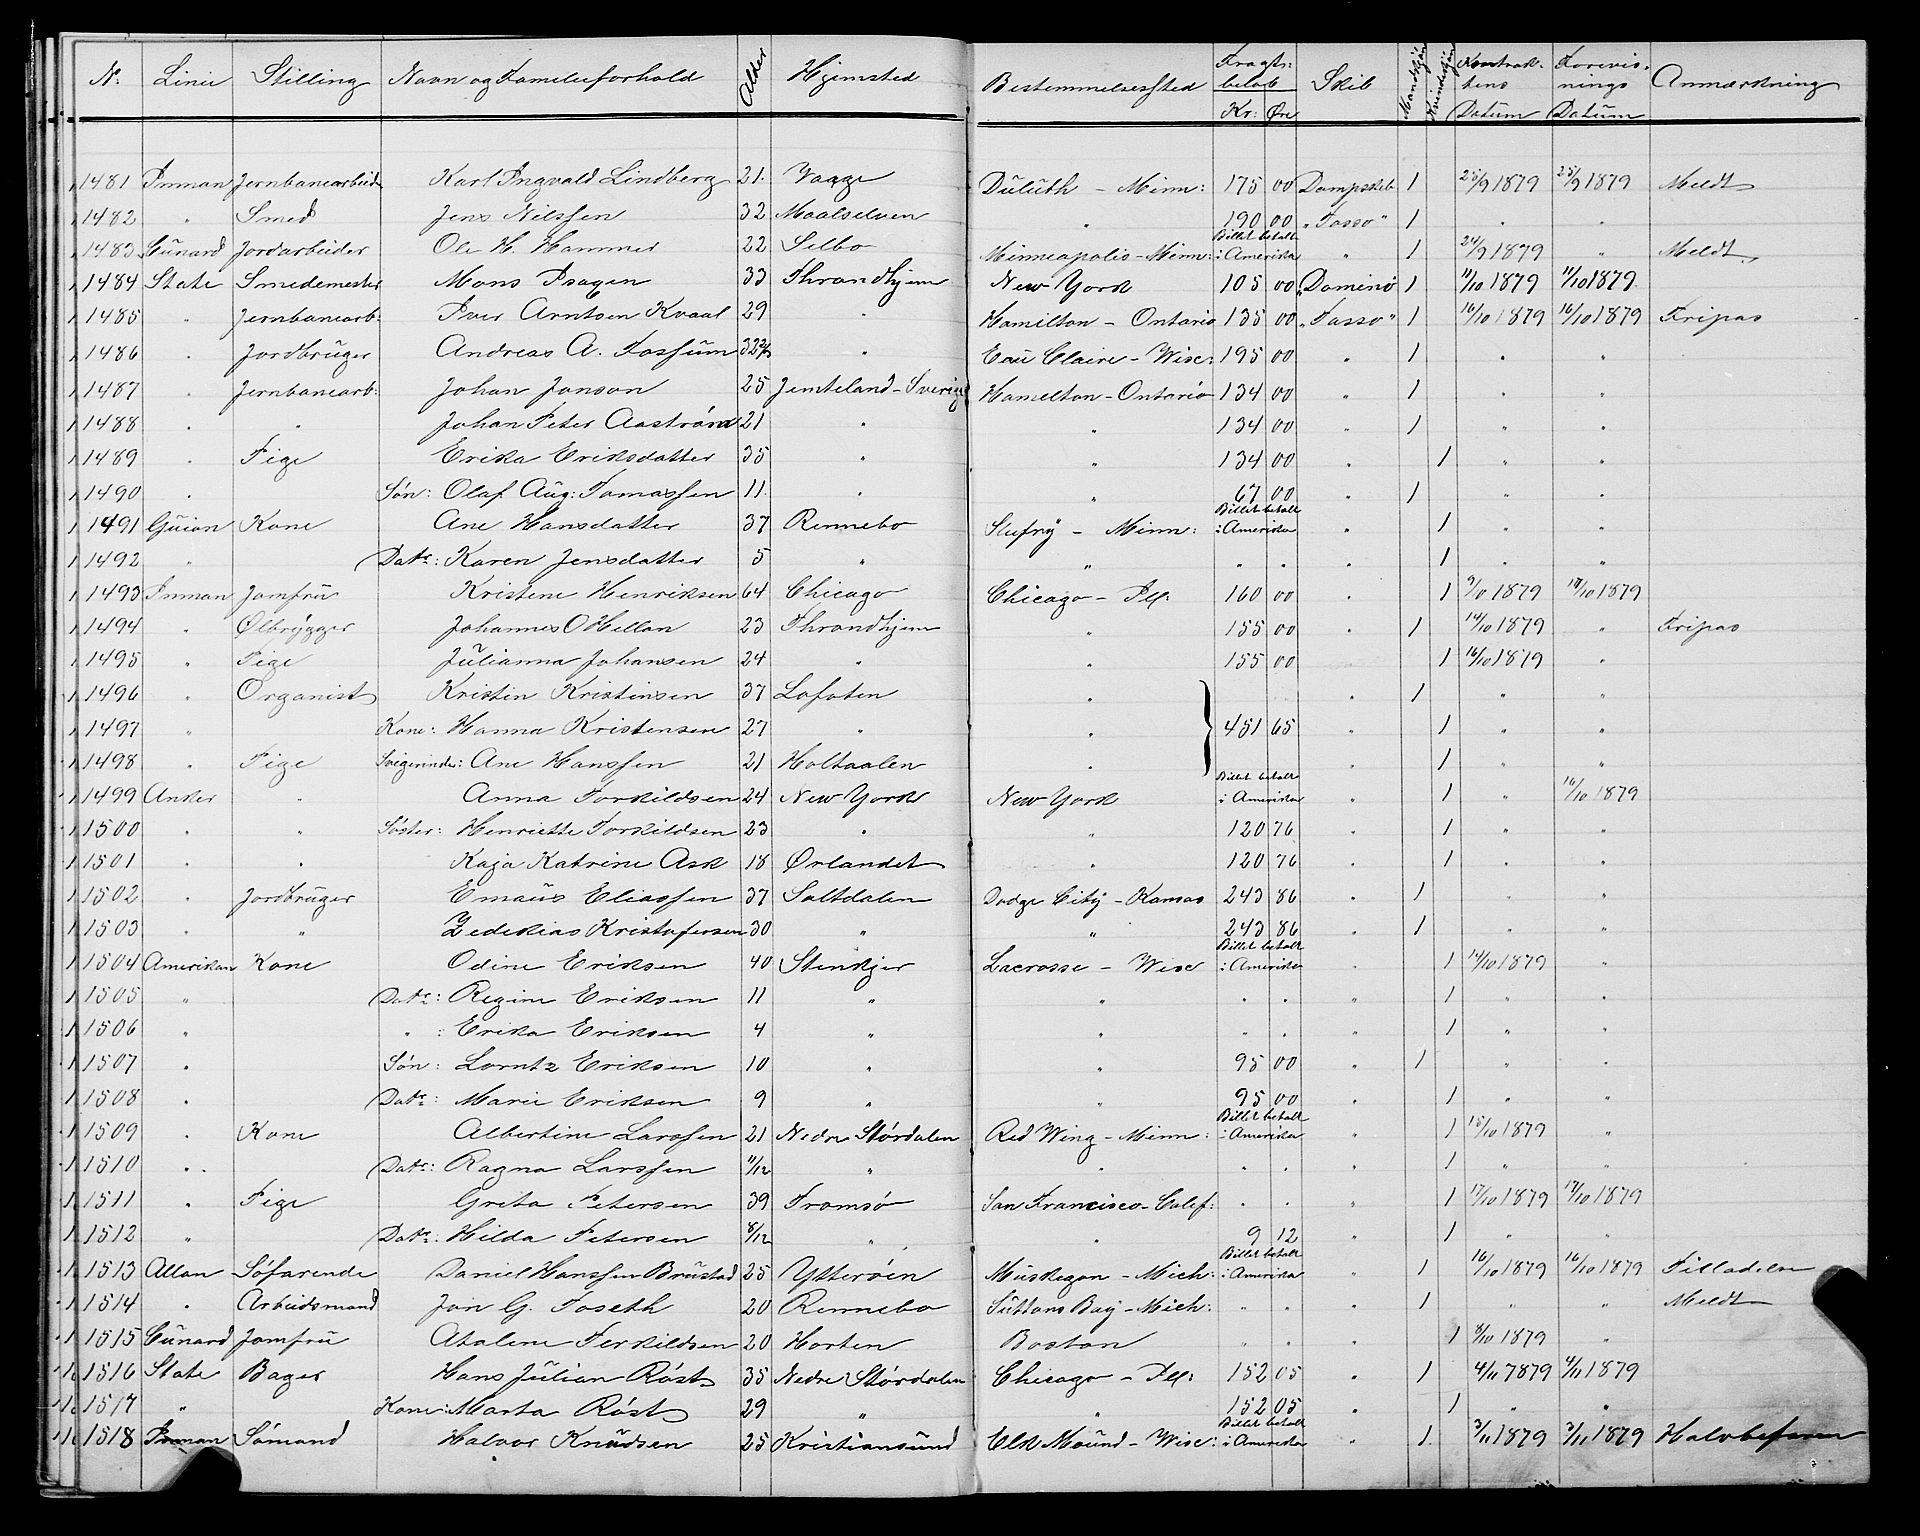 Nr: Linie Stilling Navn og Familieforhold Alder Hjemsted Bestemmelsessted Fragtbeløb Kr: Øre Skib Mandkjøn Kvindekjøn Kontraktens Datum Forevisnings Datum Anmærkning
1481 Inman Jernbanearbeid Karl Ingvald Lindberg 21. Vaage Duluth - Minn: 175 00 Dampskib 1 25/9 1879 25/9 1879 Meldt
1482 " Smed Jens Nilssen 32 Maalselven " 190 00 "Tasso" 1 " "
1483 Cunard Jordarbeider Ole H. Hammer 22 Selbo Minneapolis - Minn: Billet betalt i Amerika " 1 24/9 1879 " Meldt
1484 State Smedemester Mons Isagen 33 Throndhjem New York 105 00 "Domino" 1 11/10 1879 11/10 1879
1485 " Jernbanearb: Iver Arntsen Kvaal 29 " Hamilton - Ontario 135 00 "Tasso" 1 16/10 1879 16/10 1879 Fripas
1486 " Jordbruger Andreas A. Fossum 32 " Eau Claire - Wisc: 195 00 " 1 " "
1487 " Jernbanearb: Johan Jonson 25 Jemteland - Sverige Hamelton - Ontario 134 00 " 1 " "
1488 " " Johan Peter Aaström 21 " " 134 00 " 1 " "
1489 " Pige Erika Eriksdatter 35 " " 134 00 " 1 " "
1490 " Søn: Olaf Aug: Tomassen 11 " " 67 00 " 1 " "
1491 Guion Kone Ane Hansdatter 37 Rennebo - Minn: Billet betalt i Amerika " 1 " "
1492 " Datr: Karen Jensdatter 5 " " " " " 1 " "
1493 Inman Jomfru Kristene Henriksen 64 Chicago Chicago - Ill: 160 00 " 1 9/10 1879 18/10 1879
1494 " Ølbrygger Johannes O Hellan 23 Throndhjem " 155 00 " 1 14/10 1879 " Fripas
1495 " Pige Julianna Johansen 24 " " 155 00 1 16/10 1879 "
1496 " Organist Kristin Kristinsen 37 Lofoten " " 1 " "
1497 " Kone: Hanna Kristensen 27 " " } 451 65 " 1 " "
1498 " Pige Svigerinde: Ane Hanssen 21 Holtaalen " " 1 " "
1499 Anker " Anna Torkildsen 24 New York New York Billet betalt i Amerika " 1 " 16/10 1879
1500 " " Søster: Henriette Torkildsen 23 " " 120 76 " 1 " "
1501 " " Kaja Katrine Ask 18 Ørlandet " 120 76 " 1 " "
1502 " Jordbruger Emaüs Eliassen 37 Saltdalen Dodge City - Kansas 243 86 " 1 " "
1503 " " Zedekias Kristofersen 30 " " 243 86 " 1 " "
1504 Amerikan Kone Odine Eriksen 40 Stenkjer Lacrosse - Wisc Billet betalt i Amerika " 1 14/10 1879 "
1505 " Datr: Regine Eriksen 11 " " " " " 1 " "
1506 " " : Erika Eriksen 4 " " " " " 1 " "
1507 " Søn: Lorntz Eriksen 10 " " 95 00 " 1 " "
1508 " Datr: Marie Eriksen 9 " " 95 00 " 1 " "
1509 " Kone Albertine Larssen 21 Nedre Størdalen Red Wing - Minn: Billet betalt i Amerika " 1 15/10 1879 "
1510 " Datr: Ragna Larssen 11/12 " " " " " 1 " "
1511 " Pige Greta Petersen 39 Tromsø San Francisco - Calif: " " " 1 17/10 1879 17/10 1879
1512 " Datr: Hilda Petersen 8/12 " " 9 12 " 1 " "
1513 Allan Søfarende Daniel Hanssen Brustad 25 Ytterøen Muskegon - Mich: Billet betalt i Amerika " 1 16/10 1879 16/10 1879
1514 " Arbeidsmand Jon G. Foseth 20 Rennebo Suttons Bay - Mich: " " " 1 " " Meldt
1515 Cunard Jomfru Atalene Terkildsen 20 Horten Boston " " " 1 8/10 1879 "
1516 State Bager Hans Julian Røst 35 Nedre Størdalen Chicago - Ill: 152 05 " 1 4/11 1879 4/11 1879
1517 " Kone: Marta Røst 29 " " 152 05 " 1 " "
1518 Inman Sømand Halvor Knudsen 25 Kristiansund Elk Mound - Wisc: Billet betalt i Amerika " 1. 3/11 1879 3/11 1879